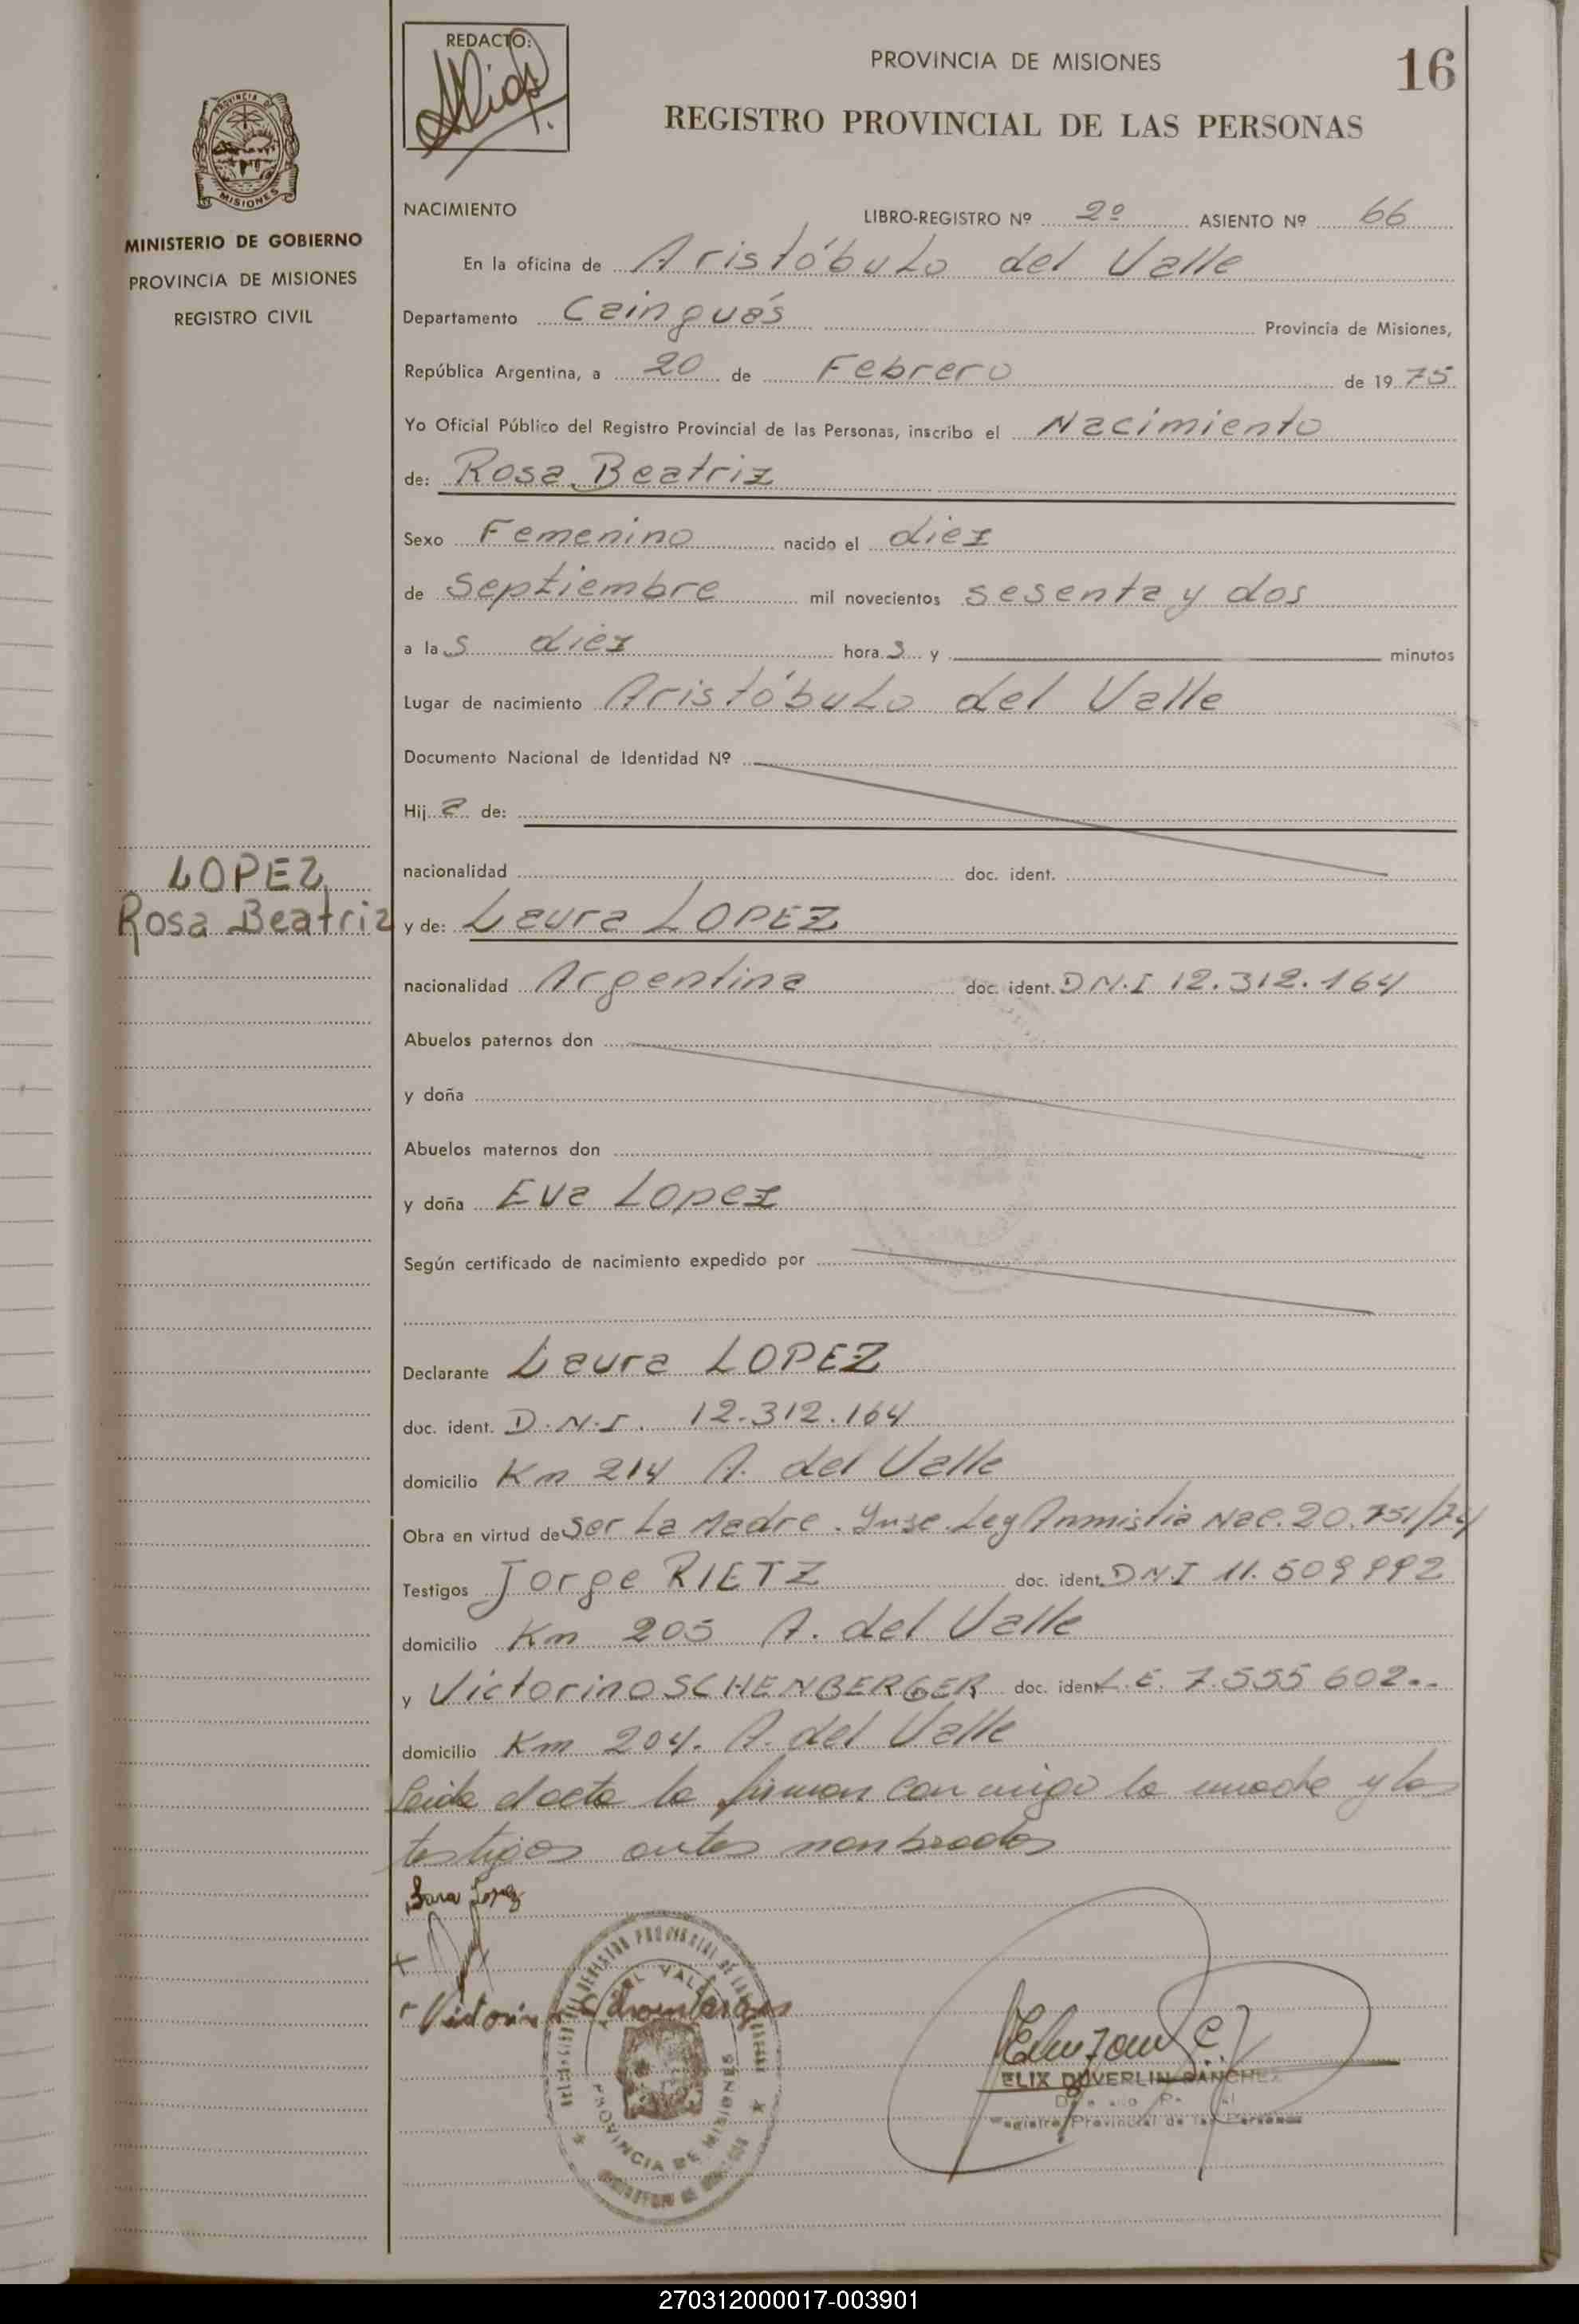 REDACTO:
PROVINCIA DE MISIONES
16
REGISTRO PROVINCIAL DE LAS PERSONAS
PROVINCIA DE MISIONES
MINISTERIO DE GOBIERNO
PROVINCIA DE MISIONES
REGISTRO CIVIL
NACIMIENTO LIBRO-REGISTRO Nº 2º ASIENTO Nº 66
En la oficina de Aristóbulo del Valle
Departamento Cainguás Provincia de Misiones,
República Argentina, a 20 de Febrero de 1975
Yo Oficial Público del Registro Provincial de las Personas, inscribo el Nacimiento
de: Rosa Beatriz
Sexo Femenino nacido el diez
de Septiembre mil novecientos sesenta y dos
a las diez horas y minutos
Lugar de nacimiento Aristóbulo del Valle
Documento Nacional de Identidad Nº
Hija de:
nacionalidad doc. ident.
LOPEZ
Rosa Beatriz
y de: Laura LOPEZ
nacionalidad Argentina doc. ident. D N.I 12.312.164
Abuelos paternos don
y doña
Abuelos maternos don
y doña Eva Lopez
Según certificado de nacimiento expedido por
Declarante Laura LOPEZ
doc. ident. D.N.I. 12.312.164
domicilio Km 214 A. del Valle
Obra en virtud de Ser La Madre. Ley Ammistia Nac. 20.751/74
Testigos Jorge RIETZ doc. ident. D N.I 11.509 992
domicilio Km 205 A. del Valle
y Victorino SCHENBERGER doc. ident L.E. 7.555 602..
domicilio Km 204. A. del Valle
Leida el acta la firman con migo la madre y los
testigos antes nombrados
Lopez
REGISTRO PROVINCIAL DE LAS PERSONAS
DEL VALLE
PROVINCIA DE MISIONES
ELIX DUVERLIN SANCHEZ
Registro Provincial de las Personas
270312000017-003901